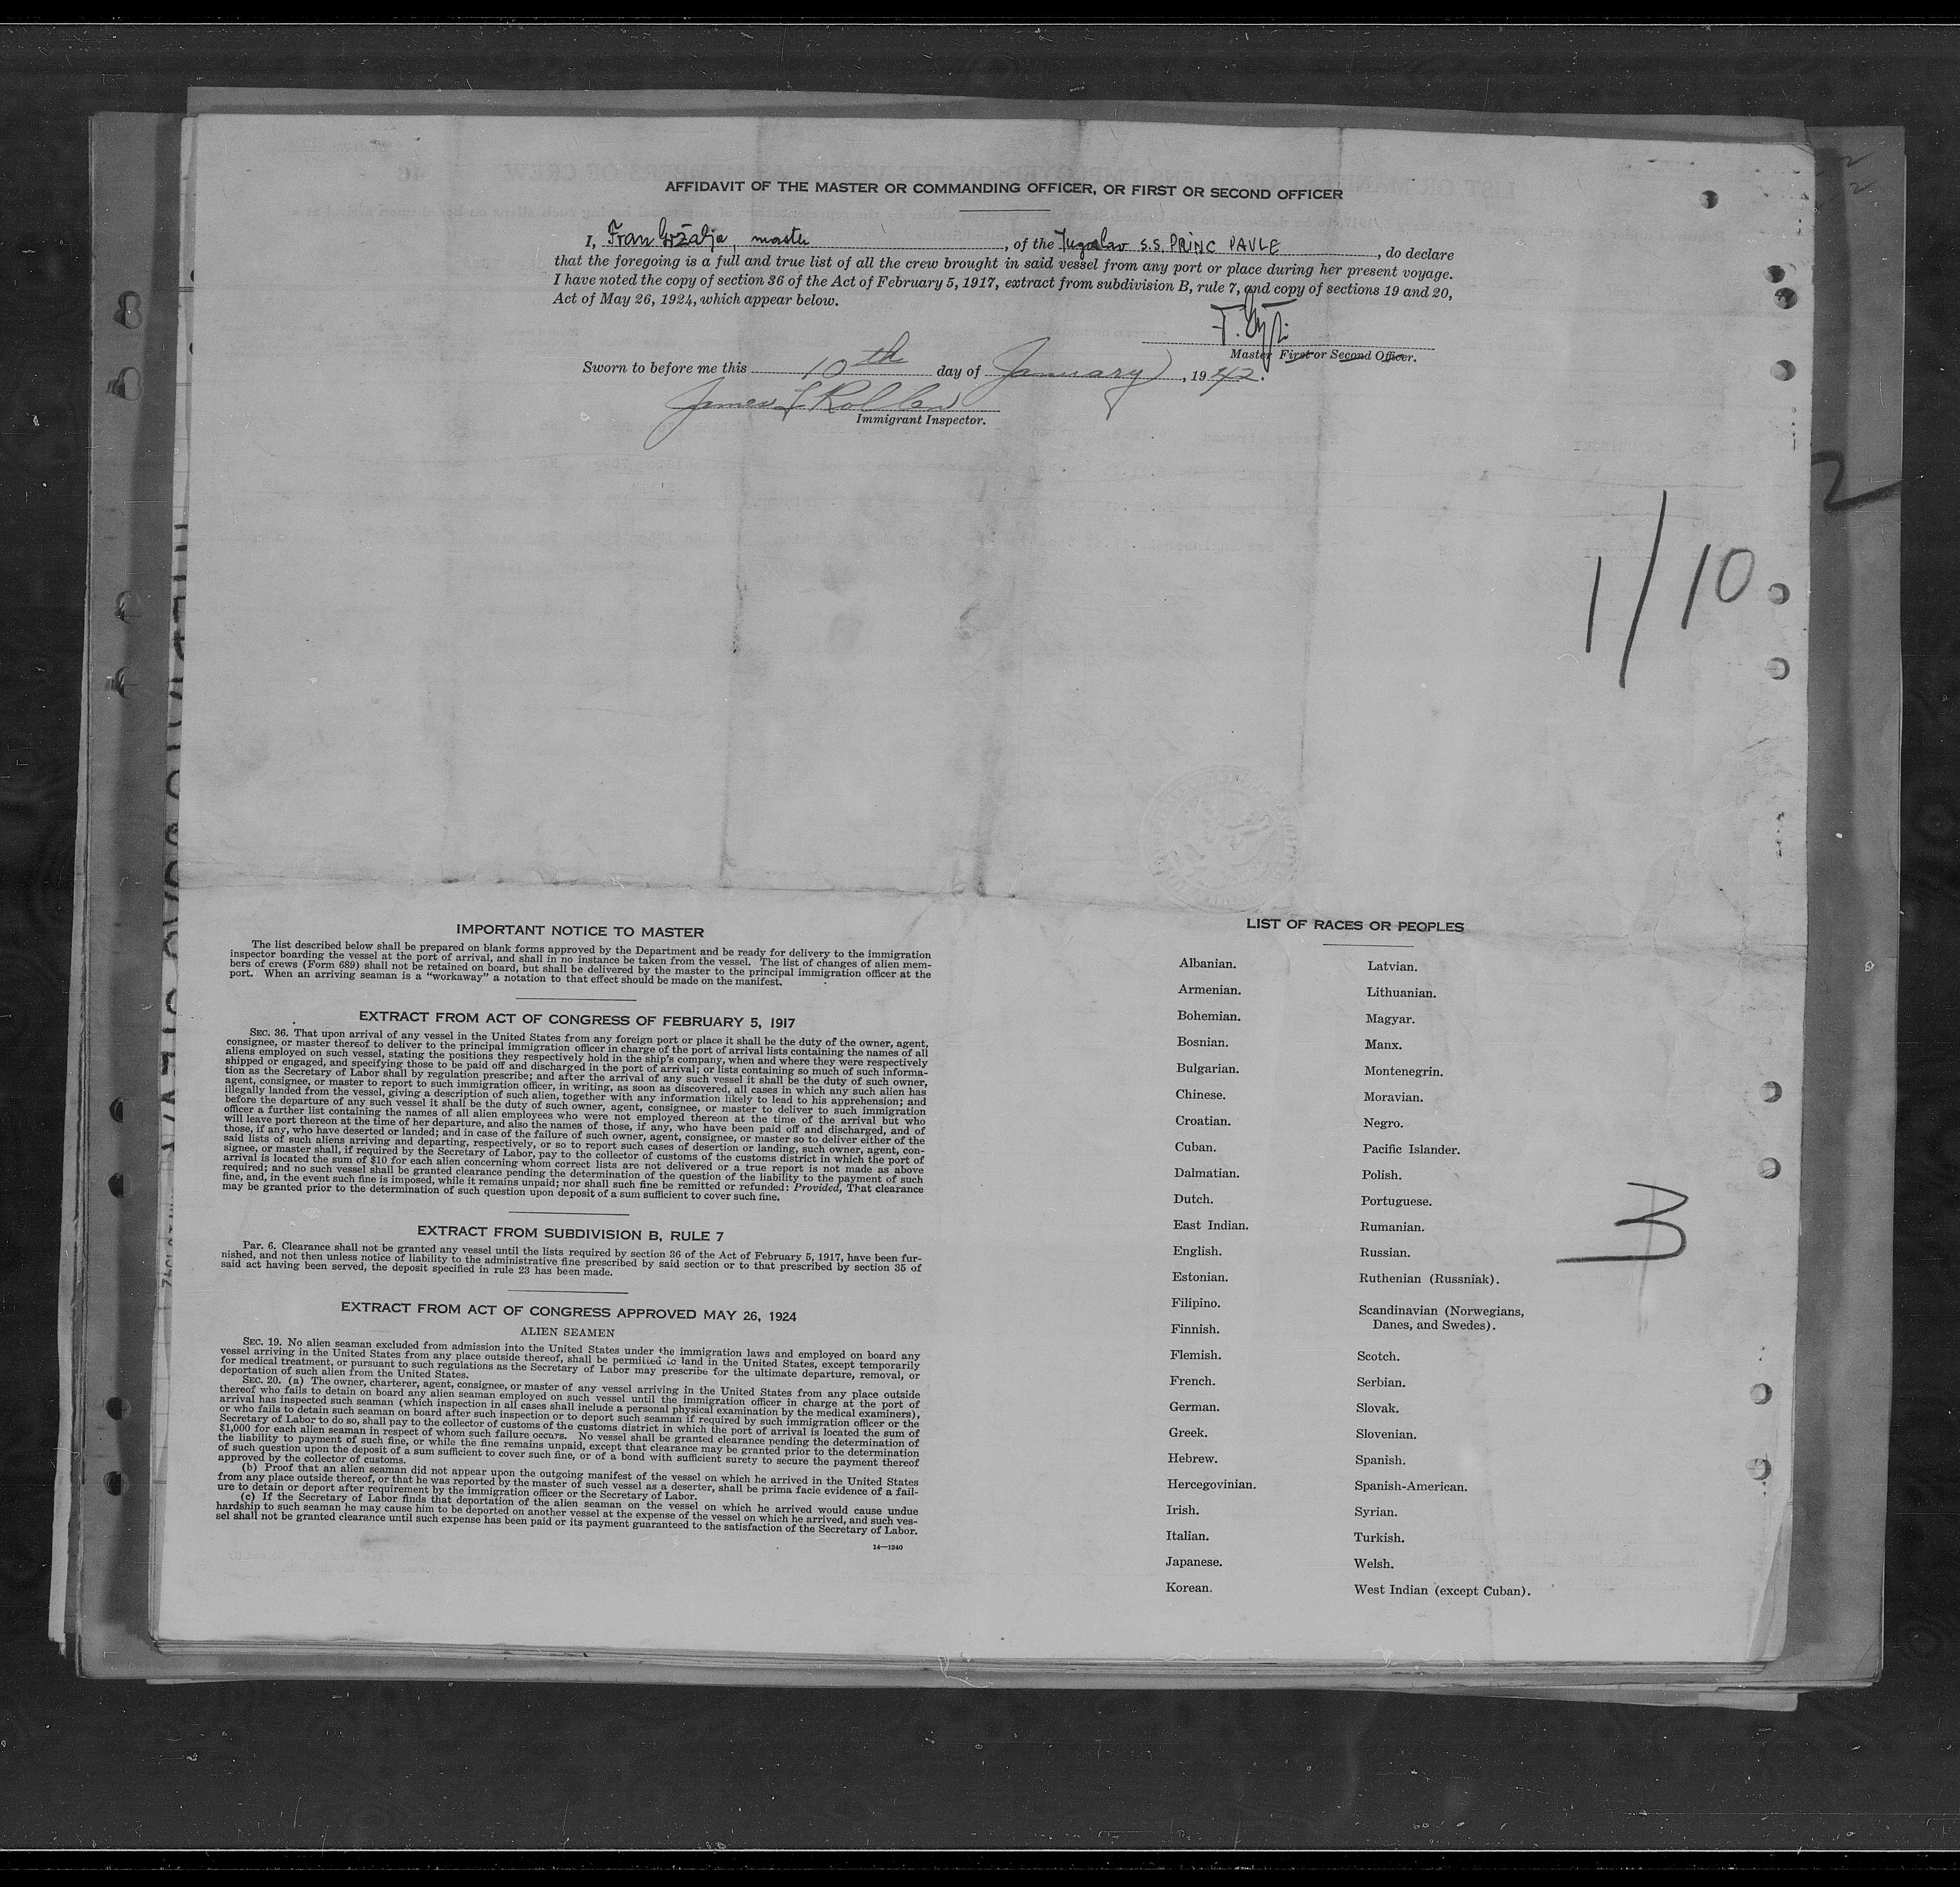 AFFIDAVIT OF THE MASTER OR COMMANDING OFFICER, OR FIRST OR SECOND OFFICER
I, Fran Gržalja, master, of the Jugoslav S.S. PRINC PAVLE, do declare
that the foregoing is a full and true list of all the crew brought in said vessel from any port or place during her present voyage.
I have noted the copy of section 36 of the Act of February 5, 1917, extract from subdivision B, rule 7, and copy of sections 19 and 20,
Act of May 26, 1924, which appear below.
Master First or Second Officer.
Sworn to before me this 10th day of January, 1942.
James
Immigrant Inspector.
2
1/10
IMPORTANT NOTICE TO MASTER
The list described below shall be prepared on blank forms approved by the Department and be ready for delivery to the immigration
inspector boarding the vessel at the port of arrival, and shall in no instance be taken from the vessel. The list of changes of alien mem-
bers of crews (Form 689) shall not be retained on board, but shall be delivered by the master to the principal immigration officer at the
port. When an arriving seaman is a "workaway" a notation to that effect should be made on the manifest.
EXTRACT FROM ACT OF CONGRESS OF FEBRUARY 5, 1917
SEC. 36. That upon arrival of any vessel in the United States from any foreign port or place it shall be the duty of the owner, agent,
consignee, or master thereof to deliver to the principal immigration officer in charge of the port of arrival lists containing the names of all
aliens employed on such vessel, stating the positions they respectively hold in the ship's company, when and where they were respectively
shipped or engaged, and specifying those to be paid off and discharged in the port of arrival; or lists containing so much of such informa-
tion as the Secretary of Labor shall by regulation prescribe; and after the arrival of any such vessel it shall be the duty of such owner,
agent, consignee, or master to report to such immigration officer, in writing, as soon as discovered, all cases in which any such alien has
illegally landed from the vessel, giving a description of such alien, together with any information likely to lead to his apprehension; and
before the departure of any such vessel it shall be the duty of such owner, agent, consignee, or master to deliver to such immigration
officer a further list containing the names of all alien employees who were not employed thereon at the time of the arrival but who
will leave port thereon at the time of her departure, and also the names of those, if any, who have been paid off and discharged, and of
those, if any, who have deserted or landed; and in case of the failure of such owner, agent, consignee, or master so to deliver either of the
said lists of such aliens arriving and departing, respectively, or so to report such cases of desertion or landing, such owner, agent, con-
signee, or master shall, if required by the Secretary of Labor, pay to the collector of customs of the customs district in which the port of
arrival is located the sum of $10 for each alien concerning whom correct lists are not delivered or a true report is not made as above
required; and no such vessel shall be granted clearance pending the determination of the question of the liability to the payment of such
fine, and, in the event such fine is imposed, while it remains unpaid; nor shall such fine be remitted or refunded: Provided, That clearance
may be granted prior to the determination of such question upon deposit of a sum sufficient to cover such fine.
EXTRACT FROM SUBDIVISION B, RULE 7
Par. 6. Clearance shall not be granted any vessel until the lists required by section 36 of the Act of February 5, 1917, have been fur-
nished, and not then unless notice of liability to the administrative fine prescribed by said section or to that prescribed by section 35 of
said act having been served, the deposit specified in rule 23 has been made.
EXTRACT FROM ACT OF CONGRESS APPROVED MAY 26, 1924
ALIEN SEAMEN
SEC. 19. No alien seaman excluded from admission into the United States under the immigration laws and employed on board any
vessel arriving in the United States from any place outside thereof, shall be permitted to land in the United States, except temporarily
for medical treatment, or pursuant to such regulations as the Secretary of Labor may prescribe for the ultimate departure, removal, or
deportation of such alien from the United States.
SEC. 20. (a) The owner, charterer, agent, consignee, or master of any vessel arriving in the United States from any place outside
thereof who fails to detain on board any alien seaman employed on such vessel until the immigration officer in charge at the port of
arrival has inspected such seaman (which inspection in all cases shall include a personal physical examination by the medical examiners),
or who fails to detain such seaman on board after such inspection or to deport such seaman if required by such immigration officer or the
Secretary of Labor to do so, shall pay to the collector of customs of the customs district in which the port of arrival is located the sum of
$1,000 for each alien seaman in respect of whom such failure occurs. No vessel shall be granted clearance pending the determination of
the liability to payment of such fine, or while the fine remains unpaid, except that clearance may be granted prior to the determination
of such question upon the deposit of a sum sufficient to cover such fine, or of a bond with sufficient surety to secure the payment thereof
approved by the collector of customs.
(b) Proof that an alien seaman did not appear upon the outgoing manifest of the vessel on which he arrived in the United States
from any place outside thereof, or that he was reported by the master of such vessel as a deserter, shall be prima facie evidence of a fail-
ure to detain or deport after requirement by the immigration officer or the Secretary of Labor.
(c) If the Secretary of Labor finds that deportation of the alien seaman on the vessel on which he arrived would cause undue
hardship to such seaman he may cause him to be deported on another vessel at the expense of the vessel on which he arrived, and such ves-
sel shall not be granted clearance until such expense has been paid or its payment guaranteed to the satisfaction of the Secretary of Labor.
14—1240
LIST OF RACES OR PEOPLES
Albanian.
Armenian.
Bohemian.
Bosnian.
Bulgarian.
Chinese.
Croatian.
Cuban.
Dalmatian.
Dutch.
East Indian.
English.
Estonian.
Filipino.
Finnish.
Flemish.
French.
German.
Greek.
Hebrew.
Hercegovinian.
Irish.
Italian.
Japanese.
Korean.
Latvian.
Lithuanian.
Magyar.
Manx.
Montenegrin.
Moravian.
Negro.
Pacific Islander.
Polish.
Portuguese.
Rumanian.
Russian.
Ruthenian (Russniak).
Scandinavian (Norwegians,
Danes, and Swedes).
Scotch.
Serbian.
Slovak.
Slovenian.
Spanish.
Spanish-American.
Syrian.
Turkish.
Welsh.
West Indian (except Cuban).